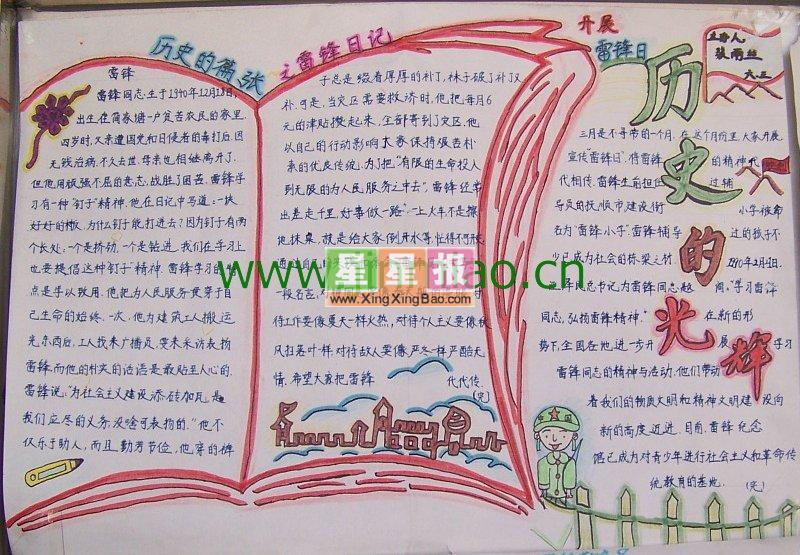 历史的篇张之雷锋日记
雷锋
雷锋同志生于1940年12月18日,
出生在简家塘一户贫苦农民的家里.
四岁时,父亲遭国党和日侵者的毒打后,因
无钱治病,不久去世,母亲也相继离开了.
但他用顽强不屈的意志,战胜了困苦,雷锋学
习有一种"钉子"精神,他在日记中写道:一块
好好的木板,为什么钉子能打进去?因为钉子有两
个长处:一个是挤劲,一个是钻进,我们在学习上
也要提倡这种钉子"精神.雷锋学习的
点是学以致用,他把为人民服务贯穿于自
己生命的始终.一次,他为建筑工人搬运
光东西后,工人找来广播员,要来采访表扬
雷锋,而他的朴实的话语是最贴至人心的.
雷锋说:"为社会主义建设添砖加瓦,是
我们应尽的义务,没啥可表扬的."他不
仅乐于助人,而且勤劳节俭,他穿的裤
子总是缀着厚厚的补丁,袜子破了补又
补.可是,当灾区需要救济时,他把每月6
元的津贴攒起来,全部寄到了灾区,他
以自己的行动影响大家保持艰苦朴
素的优良传统,为了把"有限的生命投入
到无限的为人民服务之中去",雷锋经常
出差走千里,好事做一路"一上火车不是擦
地抹桌,就是给大家倒开水等,忙得不可
一段名言:
待工作要像夏天一样火热,对待个人主义要像秋
风扫落叶一样,对待敌人要像严冬一样严酷无
情.希望大家把雷锋 代代传.
(完)
开展
雷锋日
主办人:
六.三
历史的光辉
三月是不寻常的一个月,在这个月份里,大家开展
宣传"雷锋日",将雷锋 的精神代
代相传.雷锋生前担任 过辅
导员的抚顺市建设街 小学被命
名为"雷锋小学"雷锋辅导 过的孩子不
少已成为社会的栋梁之材.
泽民总书记为雷锋同志题 词:"学习雷锋
同志,弘扬雷锋精神." 在新的形
势下,全国各地进一步开 展学习
雷锋同志的精神与活动,他们带动
着我们的物质文明和精神文明建设向
新的高度迈进.目前,雷锋纪念
馆已成为对青少年进行社会主义和革命传
统教育的基地. (完)
星星报
www.XingXingBao.com